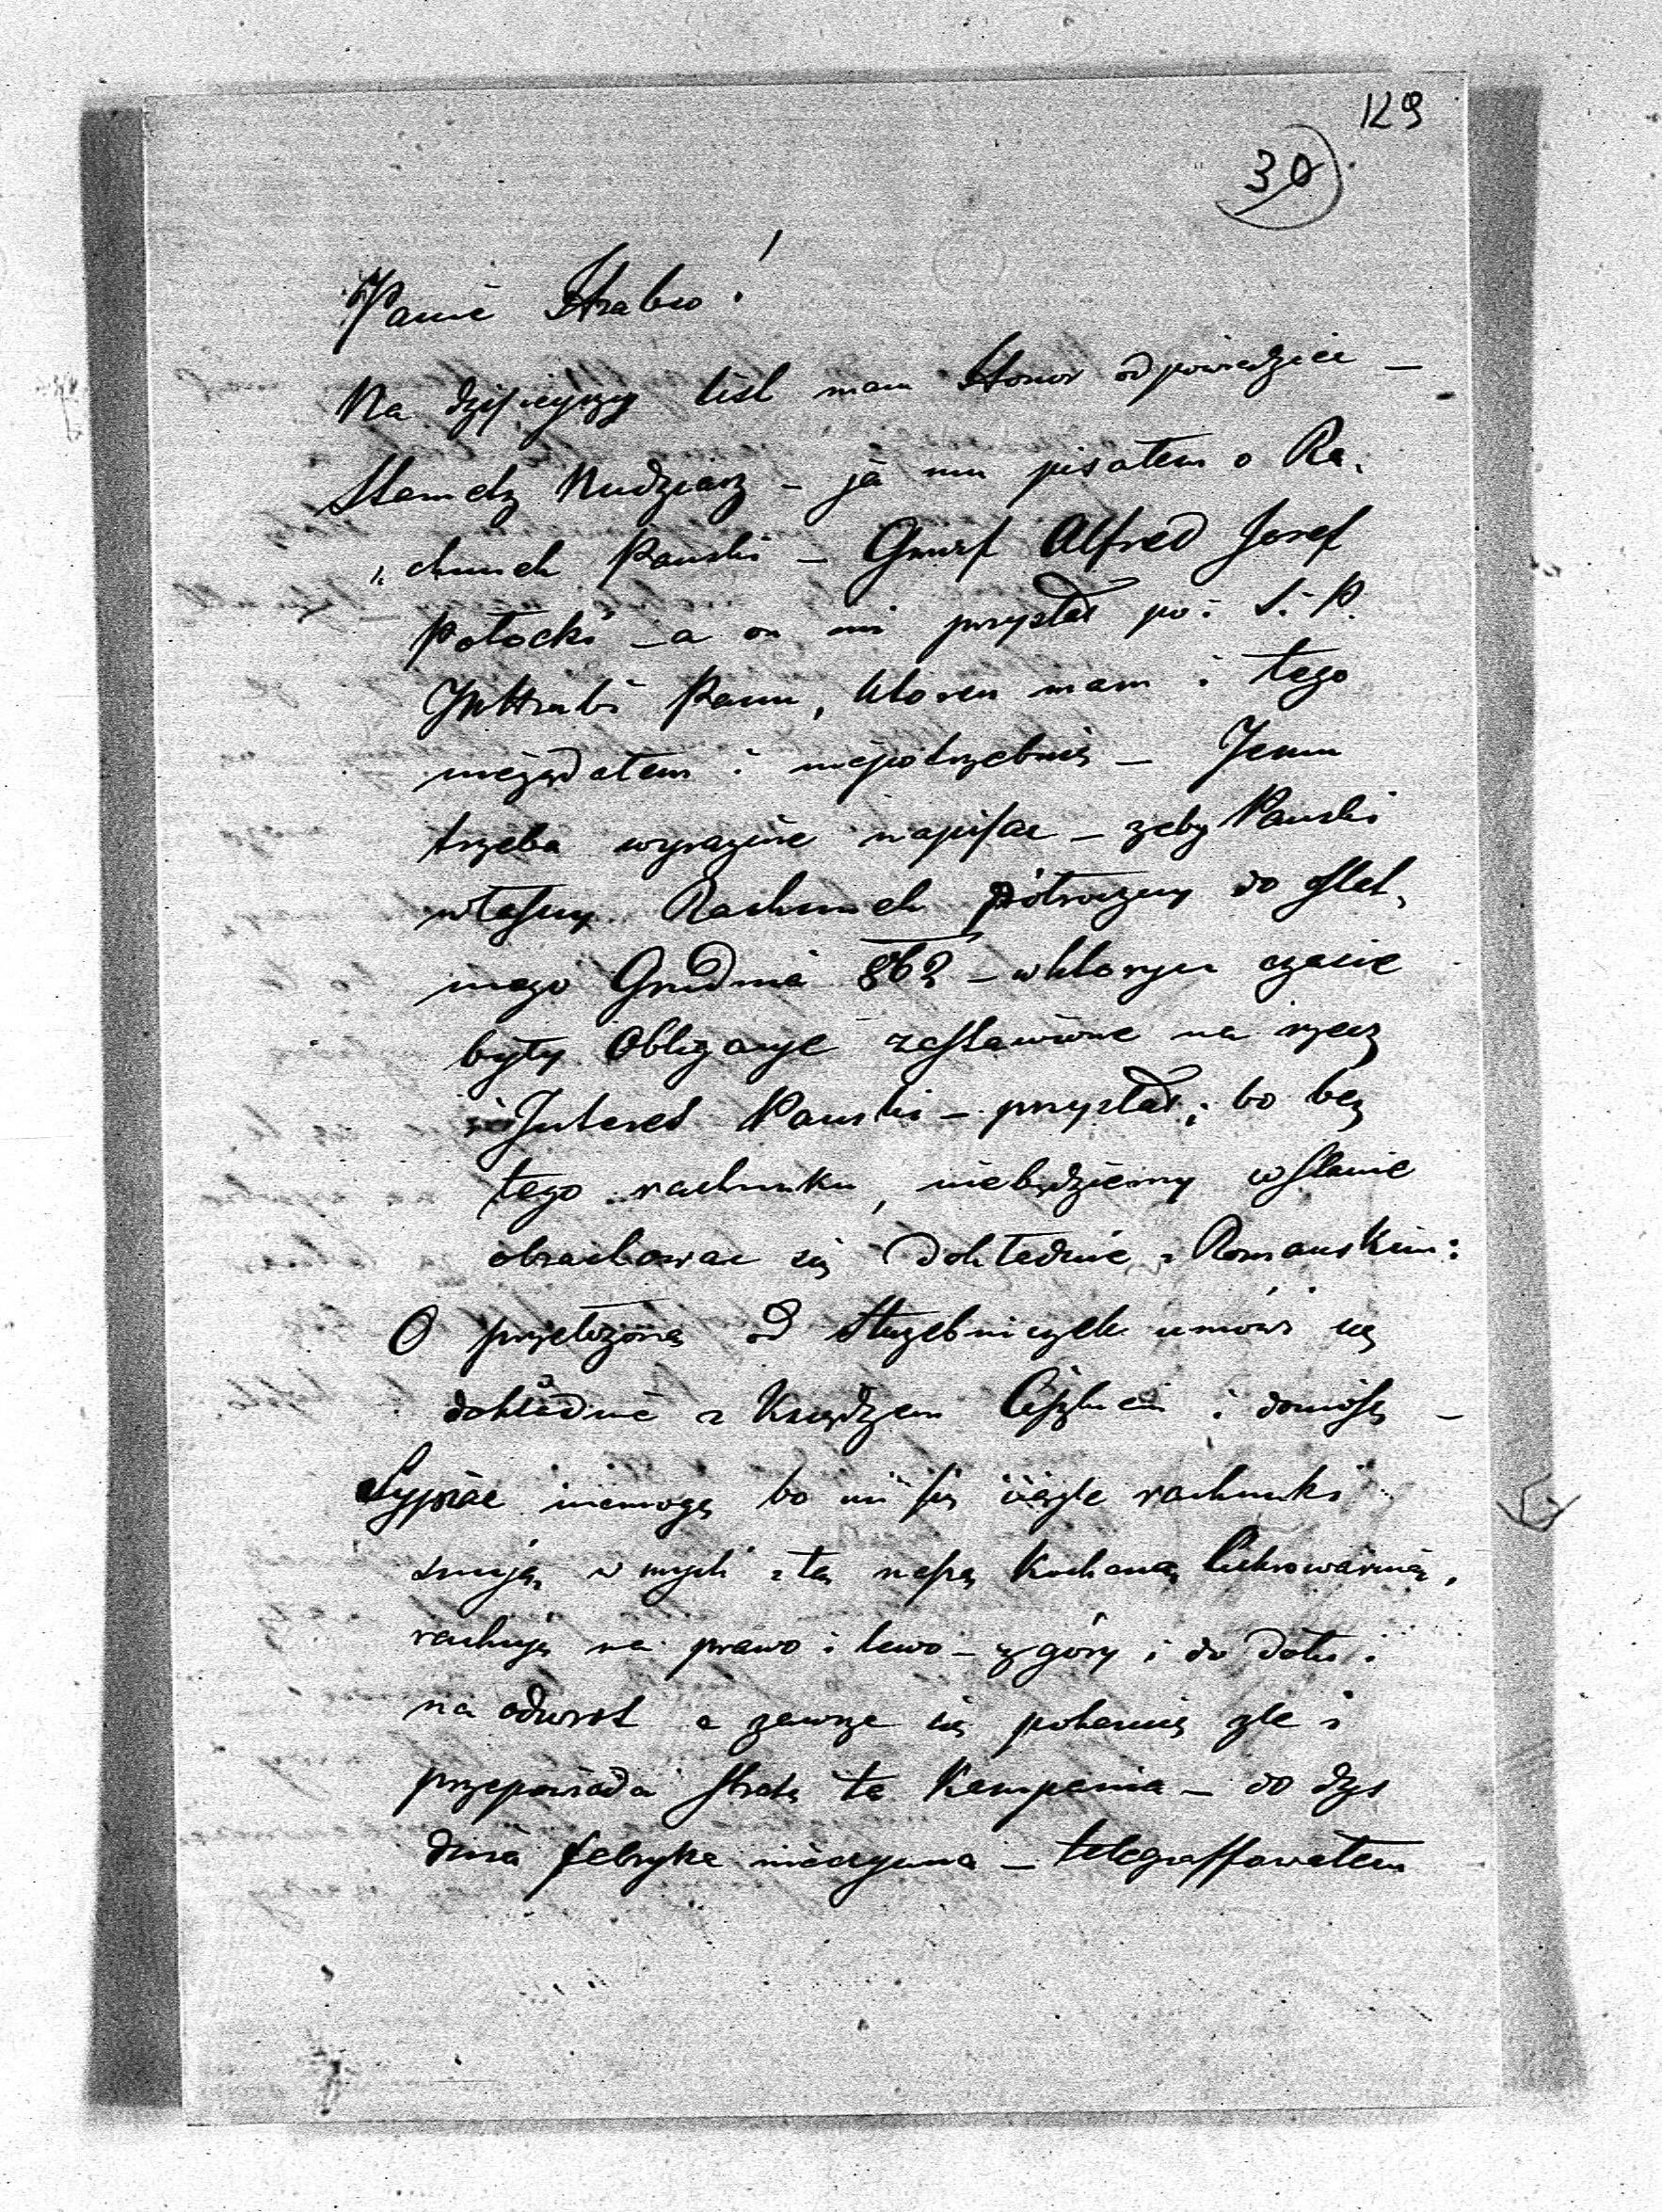 129
30
Panie Hrabio!
Na dzisieyszy list mam Honor odpowiedzieć —
Stametz Nudziarz — ja mu pisałem o Ra„
„chunek Pański — Graf Alfred Josef
Potocki — a on mi przysłał po: S: P.
JW Hrabi Panu, ktoren mam i tego
nieżądałem i niepotrzebuię — Jemu
trzeba wyraźnie napisac — zeby Pański
własny Rachunek półroczny do ostat„
niego Grudnia 862 — w ktorym czasie
były Obligacye zastawione na rzecz
i Interes Pański — przysłał; bo bez
tego rachunku, niebędziemy w stanie
obrachowac się dokładnie z Romańskim:
O przełożoną od Służebniczek umówi się
dokładnie z Księdzem i doniosę —
Sypiac niemogę bo mi się ciągle rachunki
snują w mysli z tą naszą Kochaną Cukrowarnią,
rachuję na prawo i lewo — z góry i do dołu i
na odwrot a zawsze się pokazuie zle i
przepowiada stratę ta Kampania — do dzis
dnia fabryka nieczynna — telegraffowałem